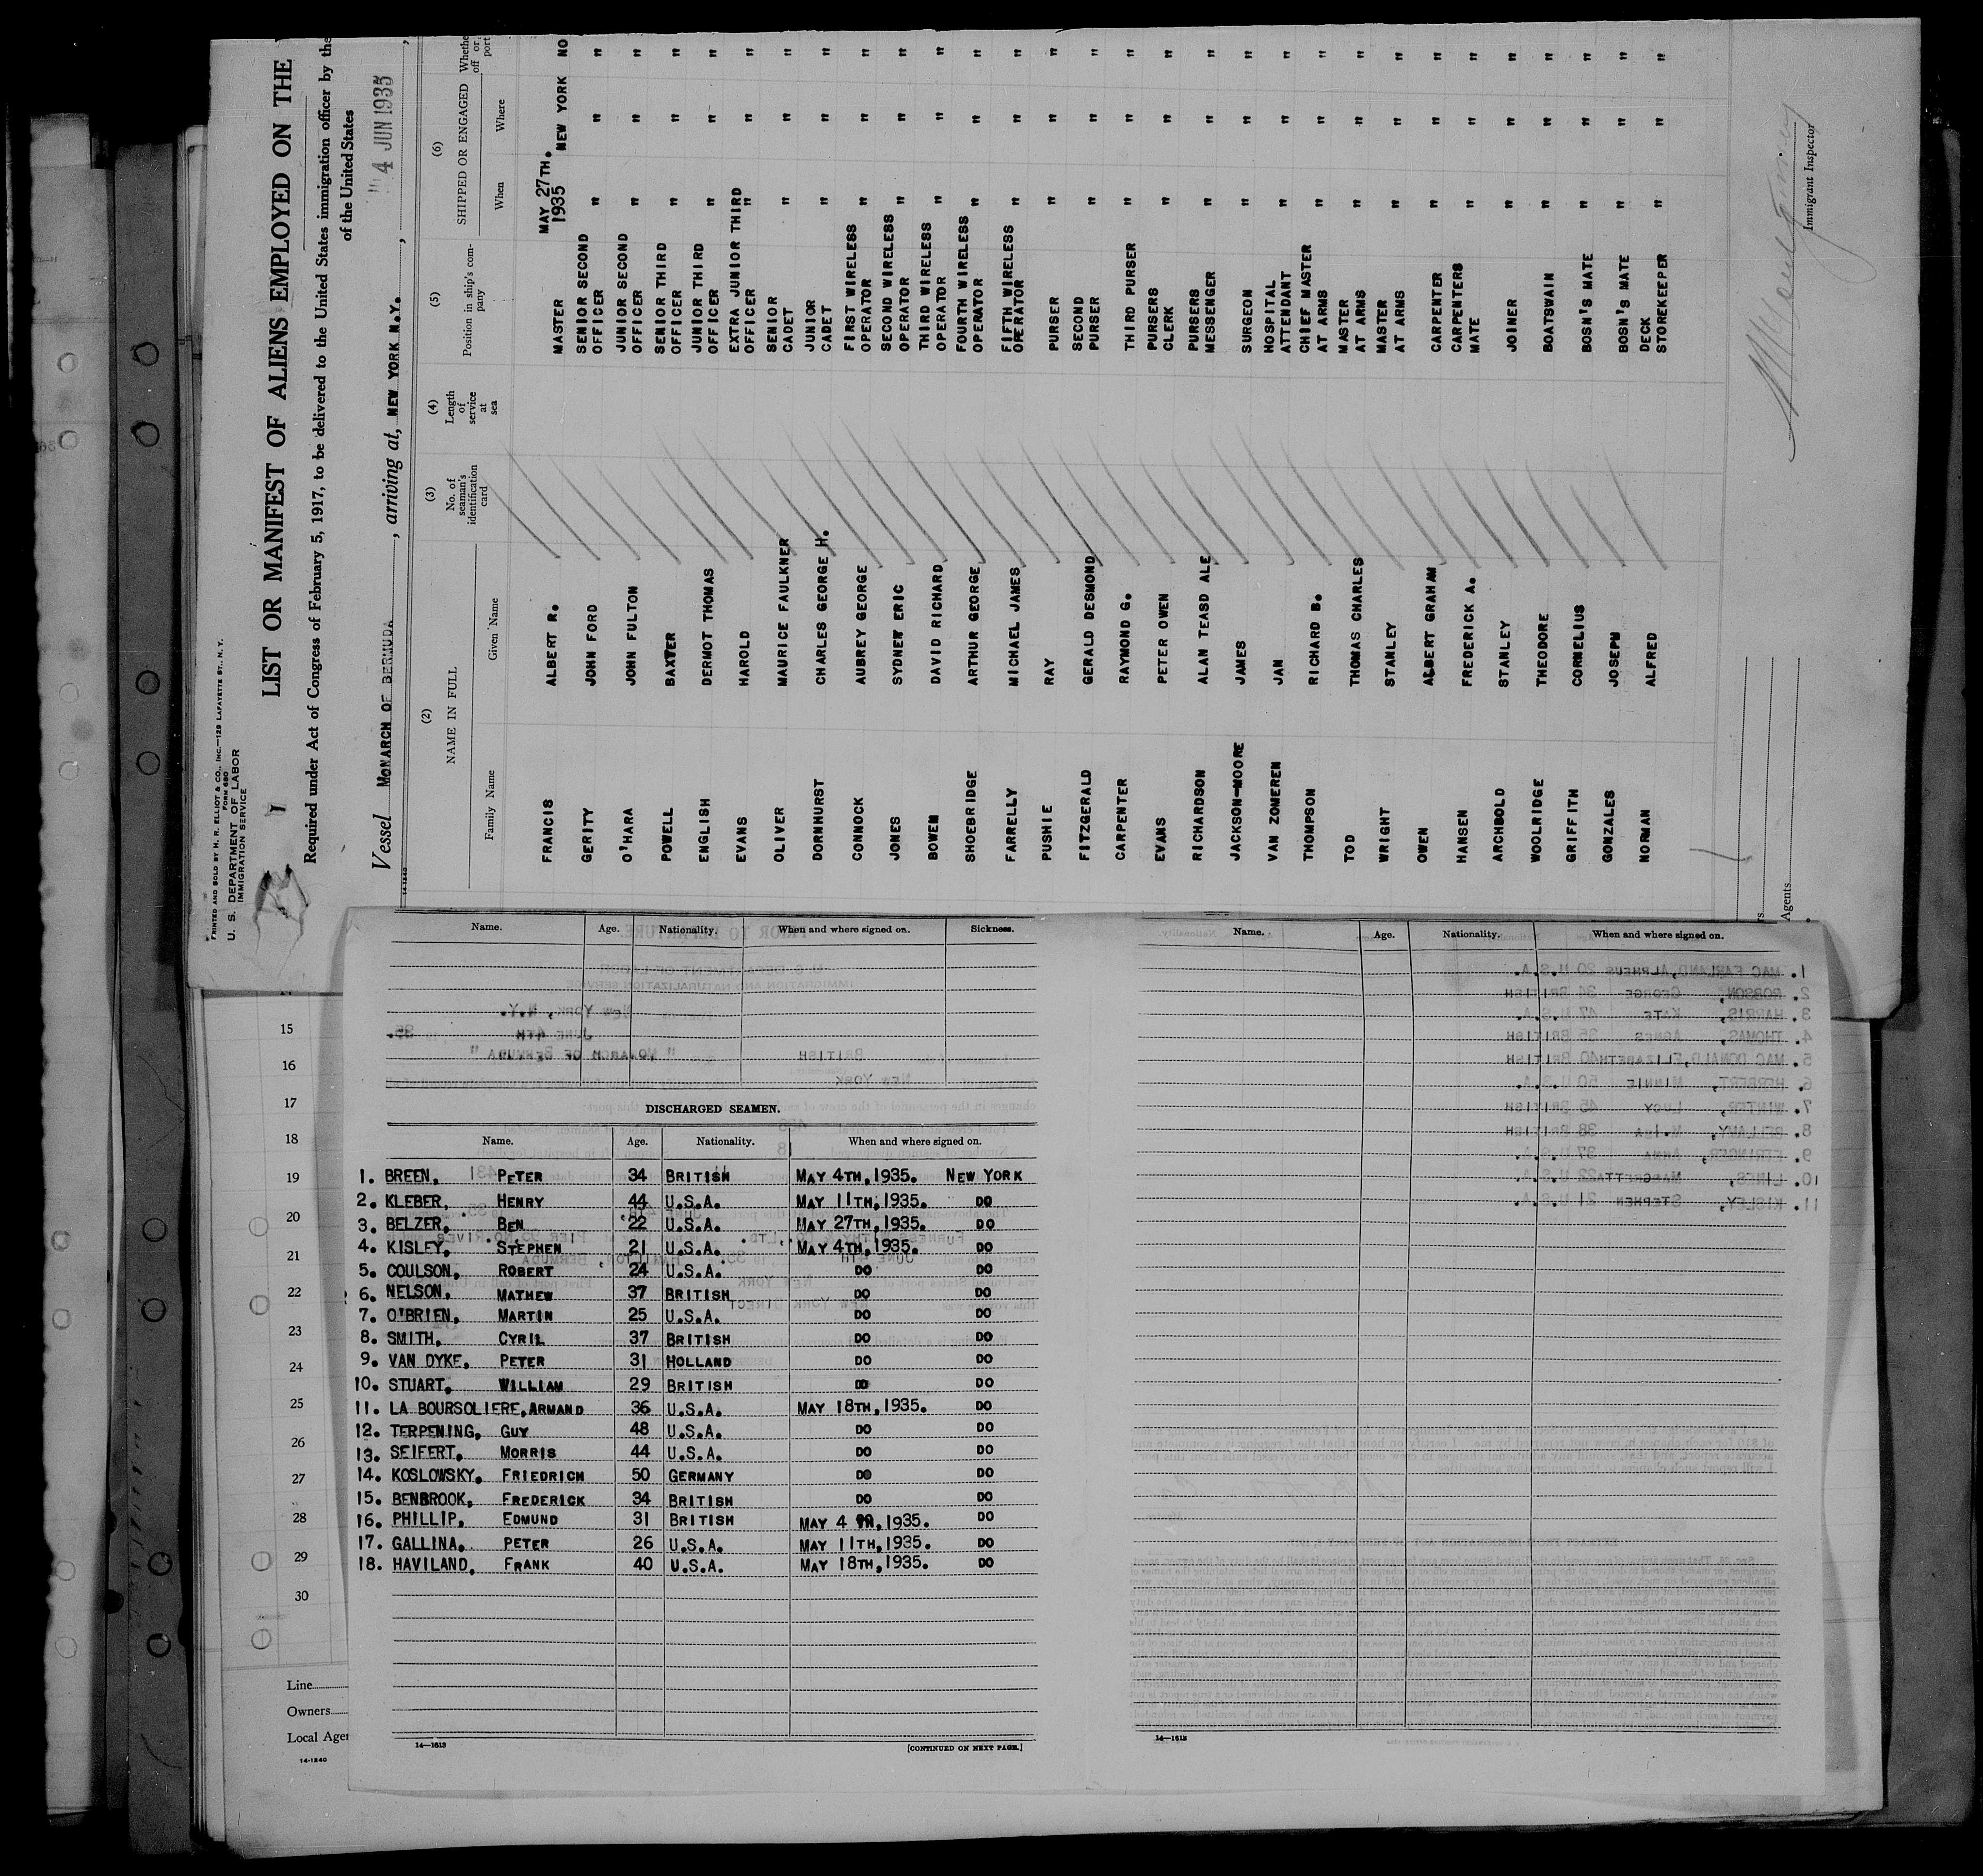 PRINTED AND SOLD BY H. R. ELLIOT & CO., INC.—129 LAFAYETTE ST., N. Y.
FORM 680
U. S. DEPARTMENT OF LABOR
IMMIGRATION SERVICE
LIST OR MANIFEST OF ALIENS EMPLOYED ON THE
Required under Act of Congress of February 5, 1917, to be delivered to the United States immigration officer by the
of the United States
Vessel MONARCH OF BERMUDA, arriving at, NEW YORK N.Y., 4 JUN 1935,
14-1240
(2) (3) (4) (5) (6)
NAME IN FULL No. of seaman's identification card Length of service at sea Position in ship's company SHIPPED OR ENGAGED
Family Name Given Name When Where
FRANCIS ALBERT R. MASTER MAY 27TH. 1935 NEW YORK NO
GERITY JOHN FORD SENIOR SECOND OFFICER " " "
O'HARA JOHN FULTON JUNIOR SECOND OFFICER " " "
POWELL BAXTER SENIOR THIRD OFFICER " " "
ENGLISH DERMOT THOMAS JUNIOR THIRD OFFICER " " "
EVANS HAROLD EXTRA JUNIOR THIRD OFFICER " " "
OLIVER MAURICE FAULKNER SENIOR CADET " " "
DORNHURST CHARLES GEORGE H. JUNIOR CADET " " "
CONNOCK AUBREY GEORGE FIRST WIRELESS OPERATOR " " "
JONES SYDNEY ERIC SECOND WIRELESS OPERATOR " " "
BOWEN DAVID RICHARD THIRD WIRELESS OPERATOR " " "
SHOEBRIDGE ARTHUR GEORGE FOURTH WIRELESS OPERATOR " " "
FARRELLY MICHAEL JAMES FIFTH WIRELESS OPERATOR " " "
PUSHIE RAY PURSER " " "
FITZGERALD GERALD DESMOND SECOND PURSER " " "
CARPENTER RAYMOND G. THIRD PURSER " " "
EVANS PETER OWEN PURSERS CLERK " " "
RICHARDSON ALAN TEASD ALE PURSERS MESSENGER " " "
JACKSON-MOORE JAMES SURGEON " " "
VAN ZOMEREN JAN HOSPITAL ATTENDANT " " "
THOMPSON RICHARD B. CHIEF MASTER AT ARMS " " "
TOD THOMAS CHARLES MASTER AT ARMS " " "
WRIGHT STANLEY MASTER AT ARMS " " "
OWEN ALBERT GRAHAM CARPENTER " " "
HANSEN FREDERICK A. CARPENTERS MATE " " "
ARCHBOLD STANLEY JOINER " " "
WOOLRIDGE THEODORE BOATSWAIN " " "
GRIFFITH CORNELIUS BOSN'S MATE " " "
GONZALES JOSEPH BOSN'S MATE " " "
NORMAN ALFRED DECK STOREKEEPER " " "
Immigrant Inspector
Agents
Name. Age. Nationality. When and where signed on. Sickness.
DISCHARGED SEAMEN.
Name. Age. Nationality. When and where signed on.
1. BREEN, PETER 34 BRITISH MAY 4TH, 1935. NEW YORK
2. KLEBER, HENRY 44 U.S.A. MAY 11TH, 1935. DO
3. BELZER, BEN 22 U.S.A. MAY 27TH, 1935. DO
4. KISLEY, STEPHEN 21 U.S.A. MAY 4TH, 1935. DO
5. COULSON, ROBERT 24 U.S.A. DO DO
6. NELSON, MATHEW 37 BRITISH DO DO
7. O'BRIEN, MARTIN 25 U.S.A. DO DO
8. SMITH, CYRIL 37 BRITISH DO DO
9. VAN DYKE, PETER 31 HOLLAND DO DO
10. STUART, WILLIAM 29 BRITISH DO DO
11. LA BOURSOLIERE, ARMAND 36 U.S.A. MAY 18TH, 1935. DO
12. TERPENING, GUY 48 U.S.A. DO DO
13. SEIFERT, MORRIS 44 U.S.A. DO DO
14. KOSLOWSKY, FRIEDRICH 50 GERMANY DO DO
15. BENBROOK, FREDERICK 34 BRITISH DO DO
16. PHILLIP, EDMUND 31 BRITISH MAY 4 TH, 1935. DO
17. GALLINA, PETER 26 U.S.A. MAY 11TH, 1935. DO
18. HAVILAND, FRANK 40 U.S.A. MAY 18TH, 1935. DO
14—1613
[CONTINUED ON NEXT PAGE.]
Name. Age. Nationality. When and where signed on.
1. MAC FARLAND, ALPHEUS 20 U.S.A.
2. ROBSON, GEORGE 34 BRITISH
3. HARRIS, KATE 47 U.S.A.
4. THOMAS, AGNES 35 BRITISH
5. MAC DONALD, ELIZABETH 40 BRITISH
6. HERBERT, MINNIE 50 U.S.A.
7. WINTER, LUCY 45 BRITISH
8. BELLAMY, 38 BRITISH
9. ANNA 37 U.S.A.
10. LINES, MARGRETTA 22 U.S.A.
11. KISLEY, STEPHEN 21 U.S.A.
14—1613
15
16
17
18
19
20
21
22
23
24
25
26
27
28
29
30
Line
Owners
Local Agen
14-1240